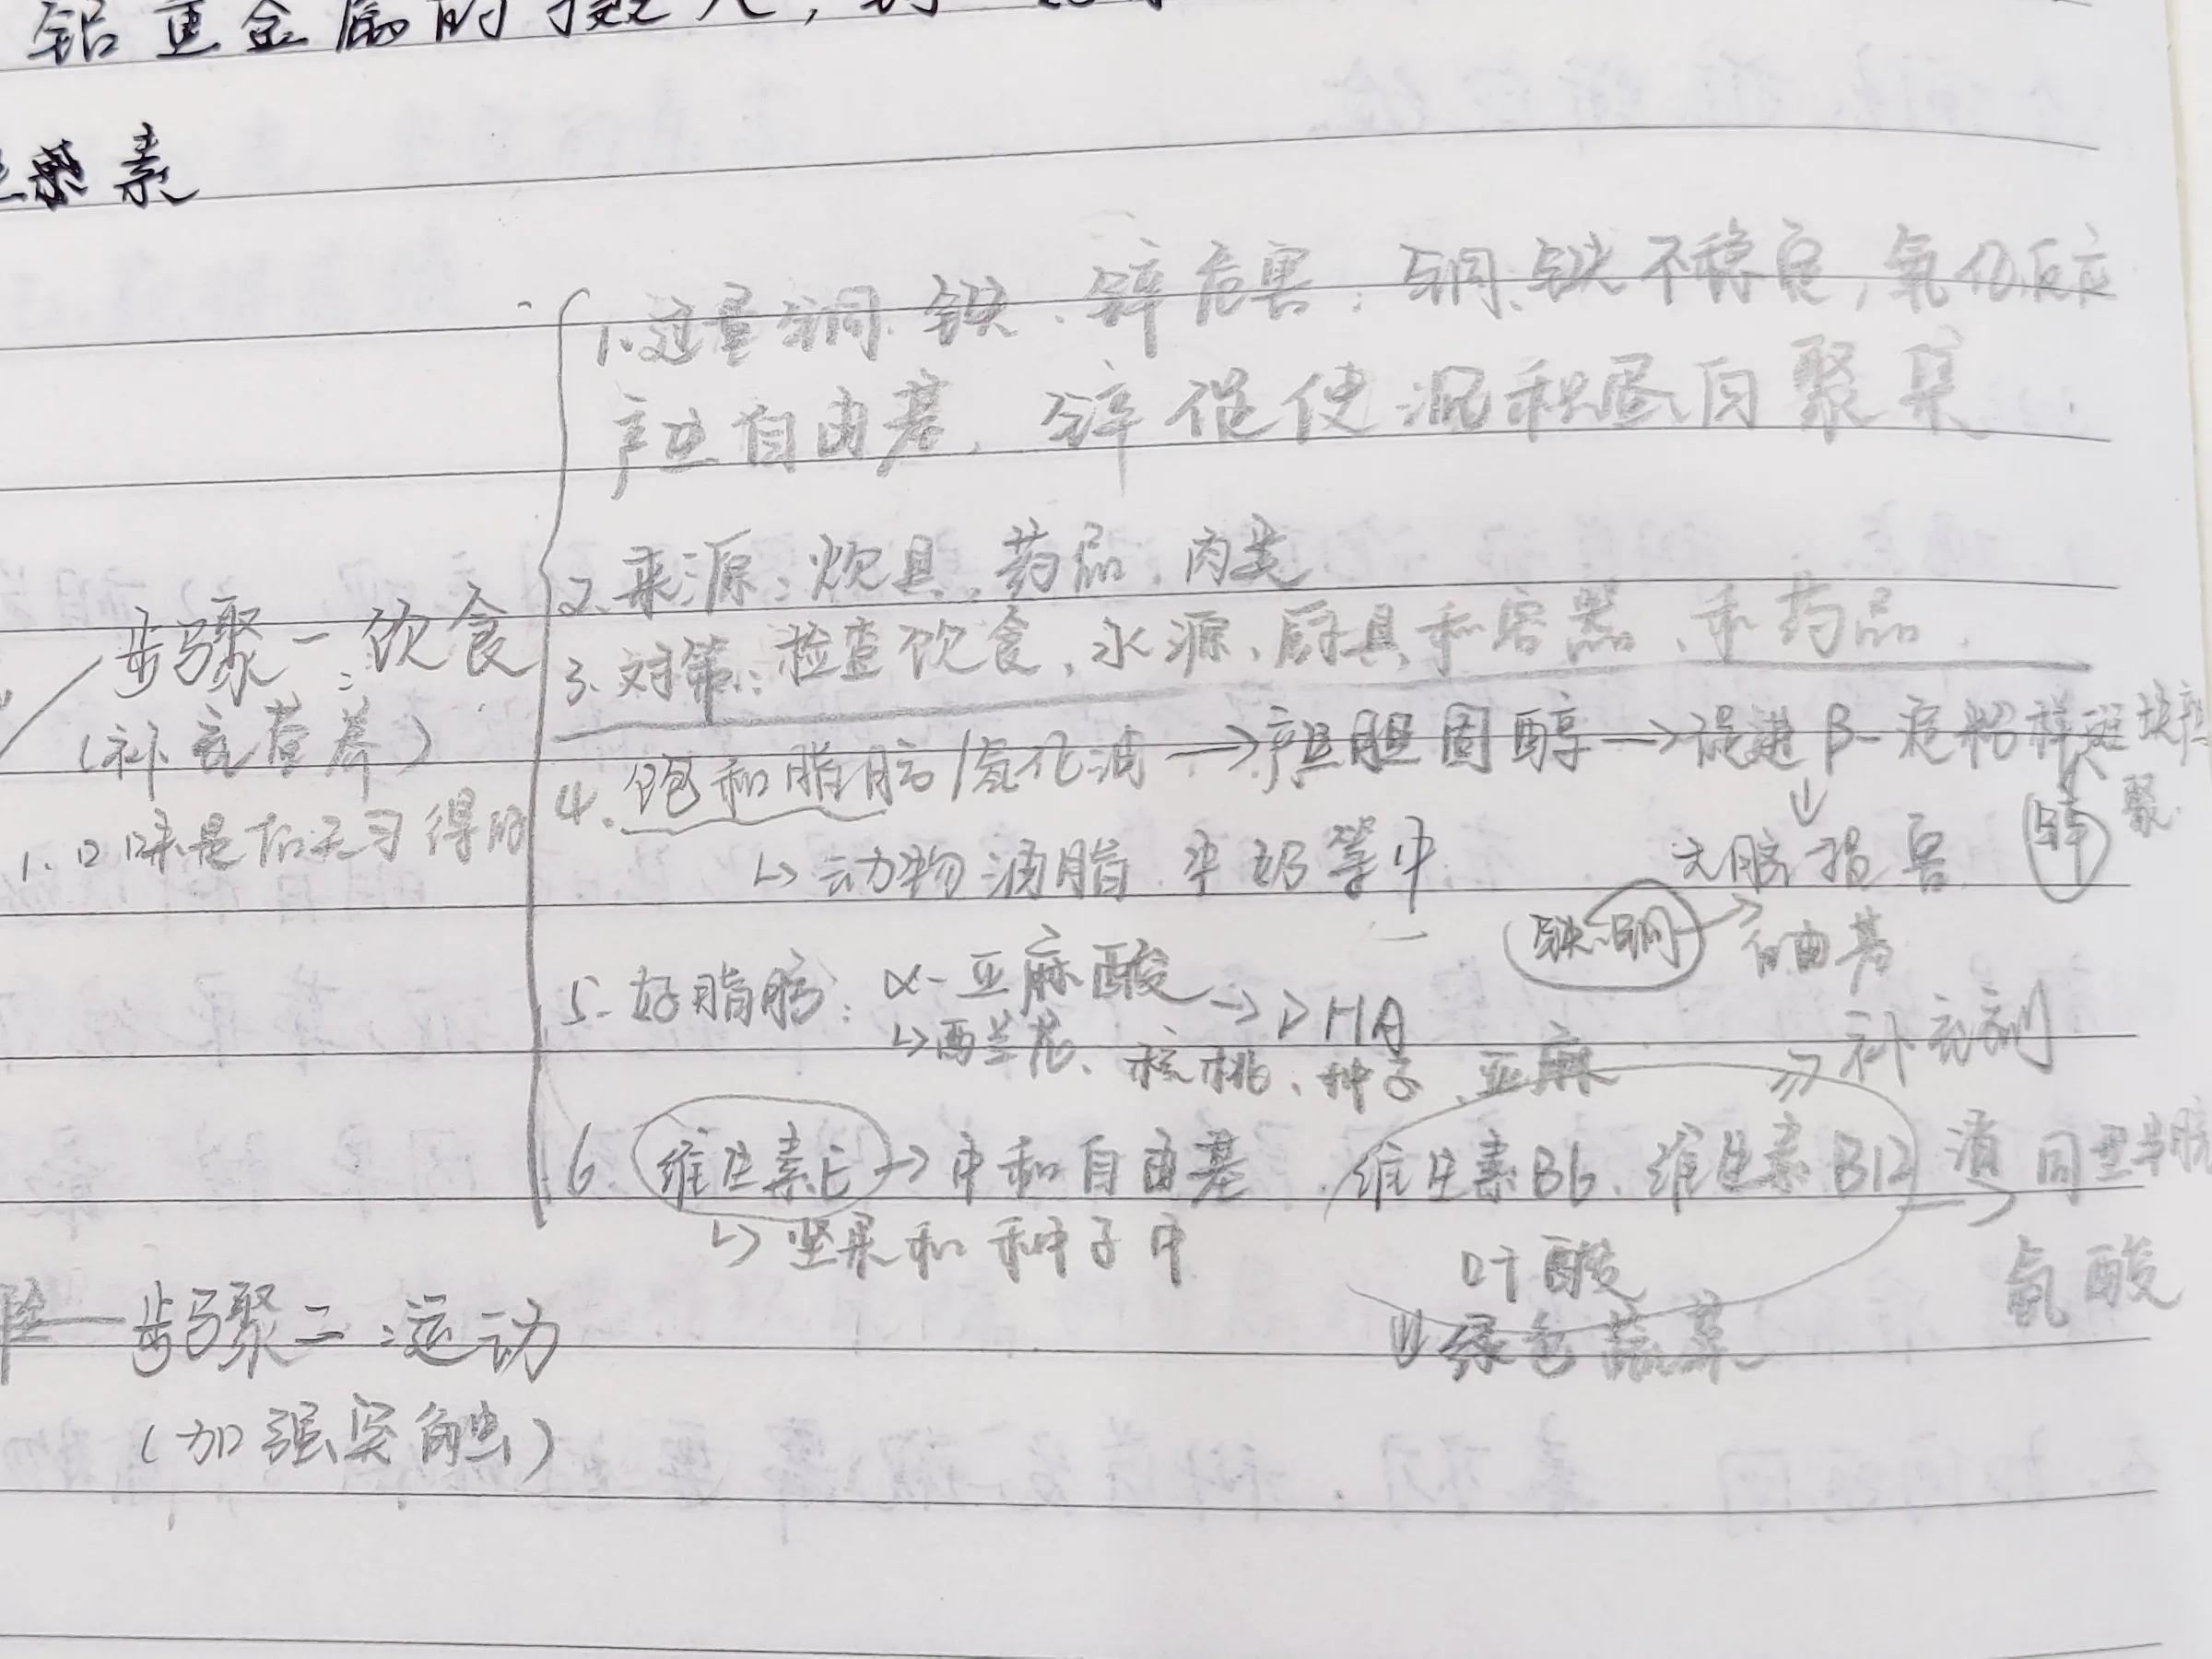 铝重金属的摄入,
素
1.过量铜、铁、锌危害：铜、铁不稳定，氧化反应
产生自由基，锌促使淀粉蛋白聚集
2.来源：炊具、药品、肉类
步骤一：饮食
3.对策：检查饮食、水源、厨具和容器、和药品.
(补充营养)
4.饱和脂肪/氢化油→产生胆固醇→促进β-淀粉样斑块
聚
↓ 锌
1.口味是后天习得的
↳动物油脂 牛奶等中
大脑损害
铁、铜→自由基
5.好脂肪：α-亚麻酸→DHA
↳西兰花、核桃、种子、亚麻
→补充剂
6.维生素E→中和自由基 维生素B6、维生素B12→消 同型半胱
↳坚果和种子中 叶酸 氨酸
步骤二：运动
⇓绿色蔬菜
(加强突触)